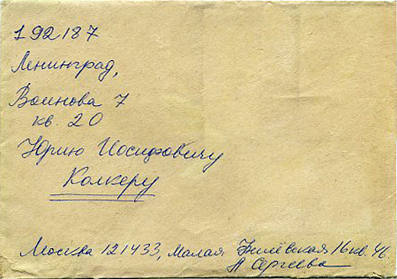 192187
Ленинград,
Воинова 7
кв. 20
Юрию Иосифовичу
Колкеру
Москва 121433, Малая Филёвская 16 кв. 46.
А Сергеева